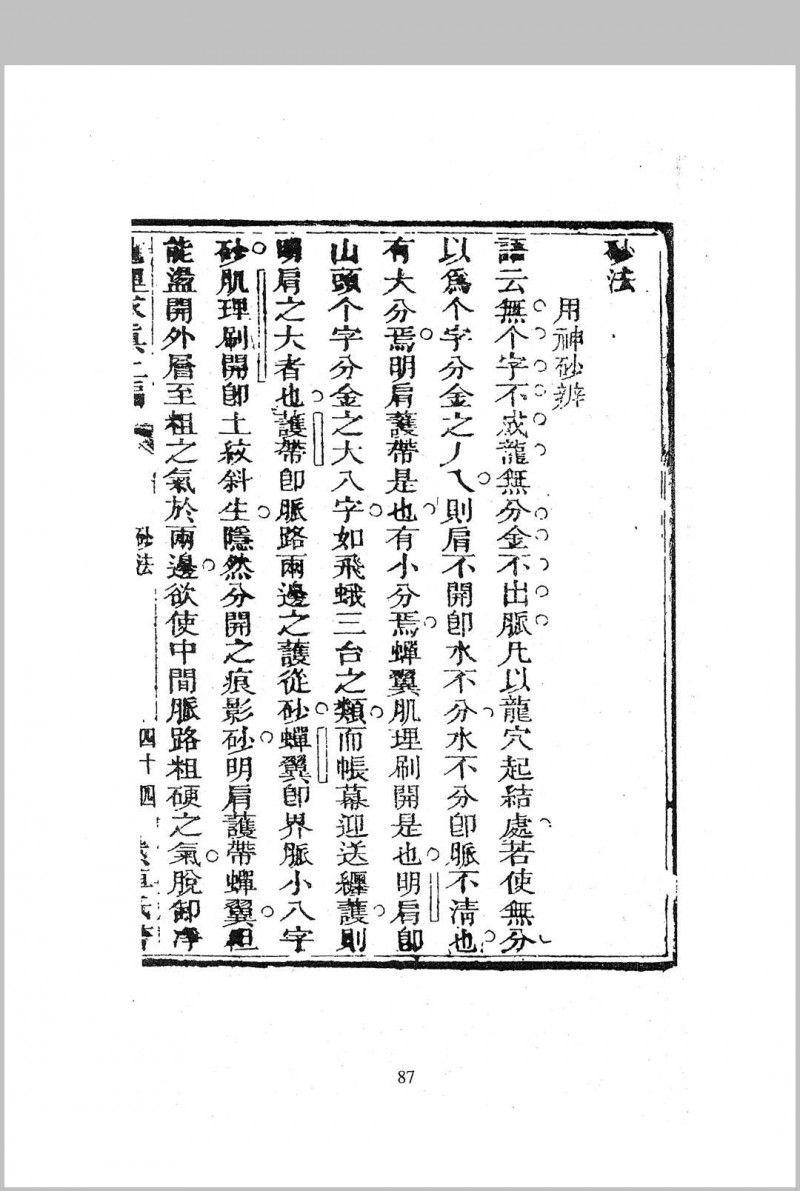 砂法
用神砂辨
語云無个字不成龍無分金不出脈凡以龍穴起結處若使無分
以爲个字分金之丿乀則肩不開卽水不分水不分卽脈不清也
有大分焉明肩護帶是也有小分焉蟬翼肌理刷開是也明肩卽
山頭个字分金之大八字如飛蛾三台之類而帳幕迎送纏護則
明肩之大者也護帶卽脈路兩邊之護從砂蟬翼卽界脈小八字
砂肌理刷開卽土紋斜生隱然分開之痕影砂明肩護帶蟬翼
能盪開外層至粗之氣於兩邊欲使中間脈路粗硬之氣脫卸凈
砂法
四十四
87